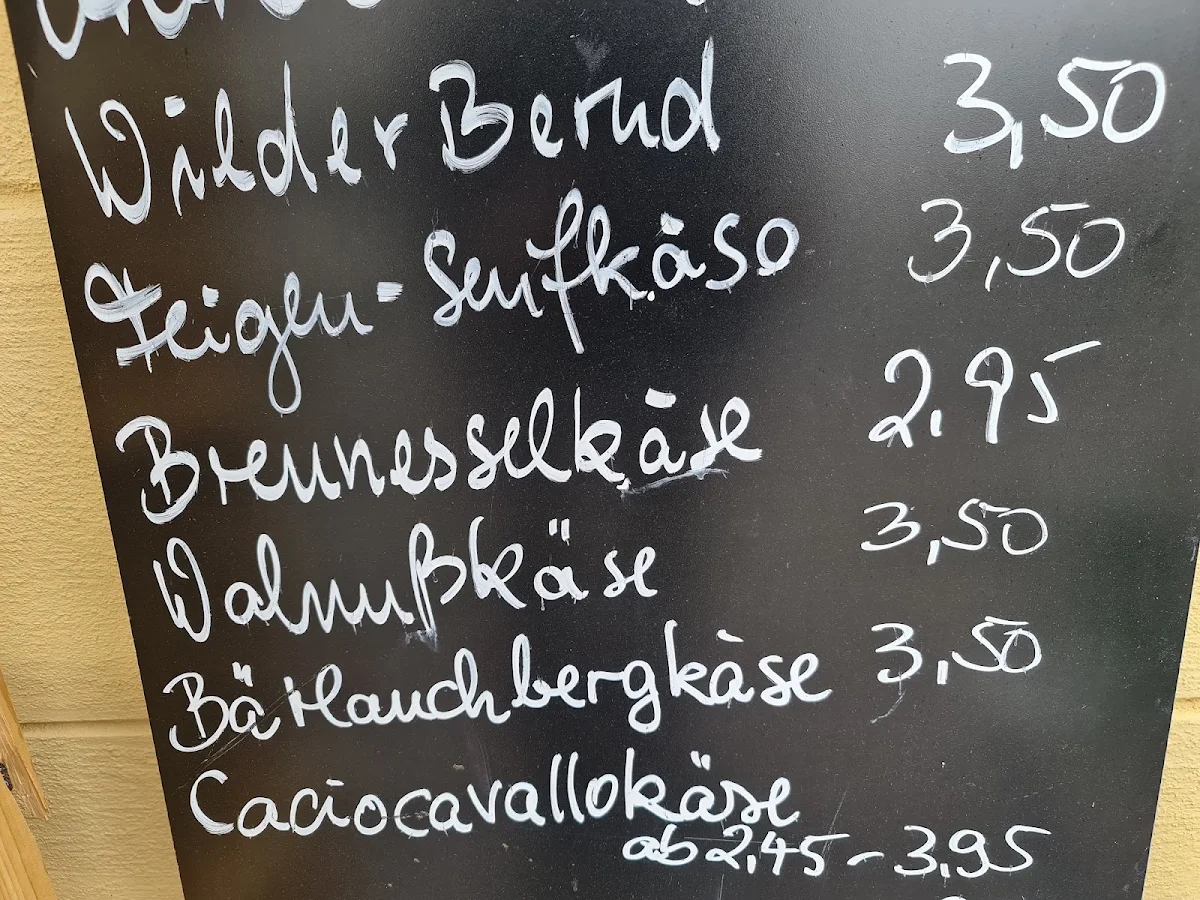 Wilder Bernd 3,50
Feigen-Senfkäse 3,50
Brennesselkäse 2,95
Walnußkäse 3,50
Bärlauchbergkäse 3,50
Caciocavallokäse
ab 2,45 - 3,95